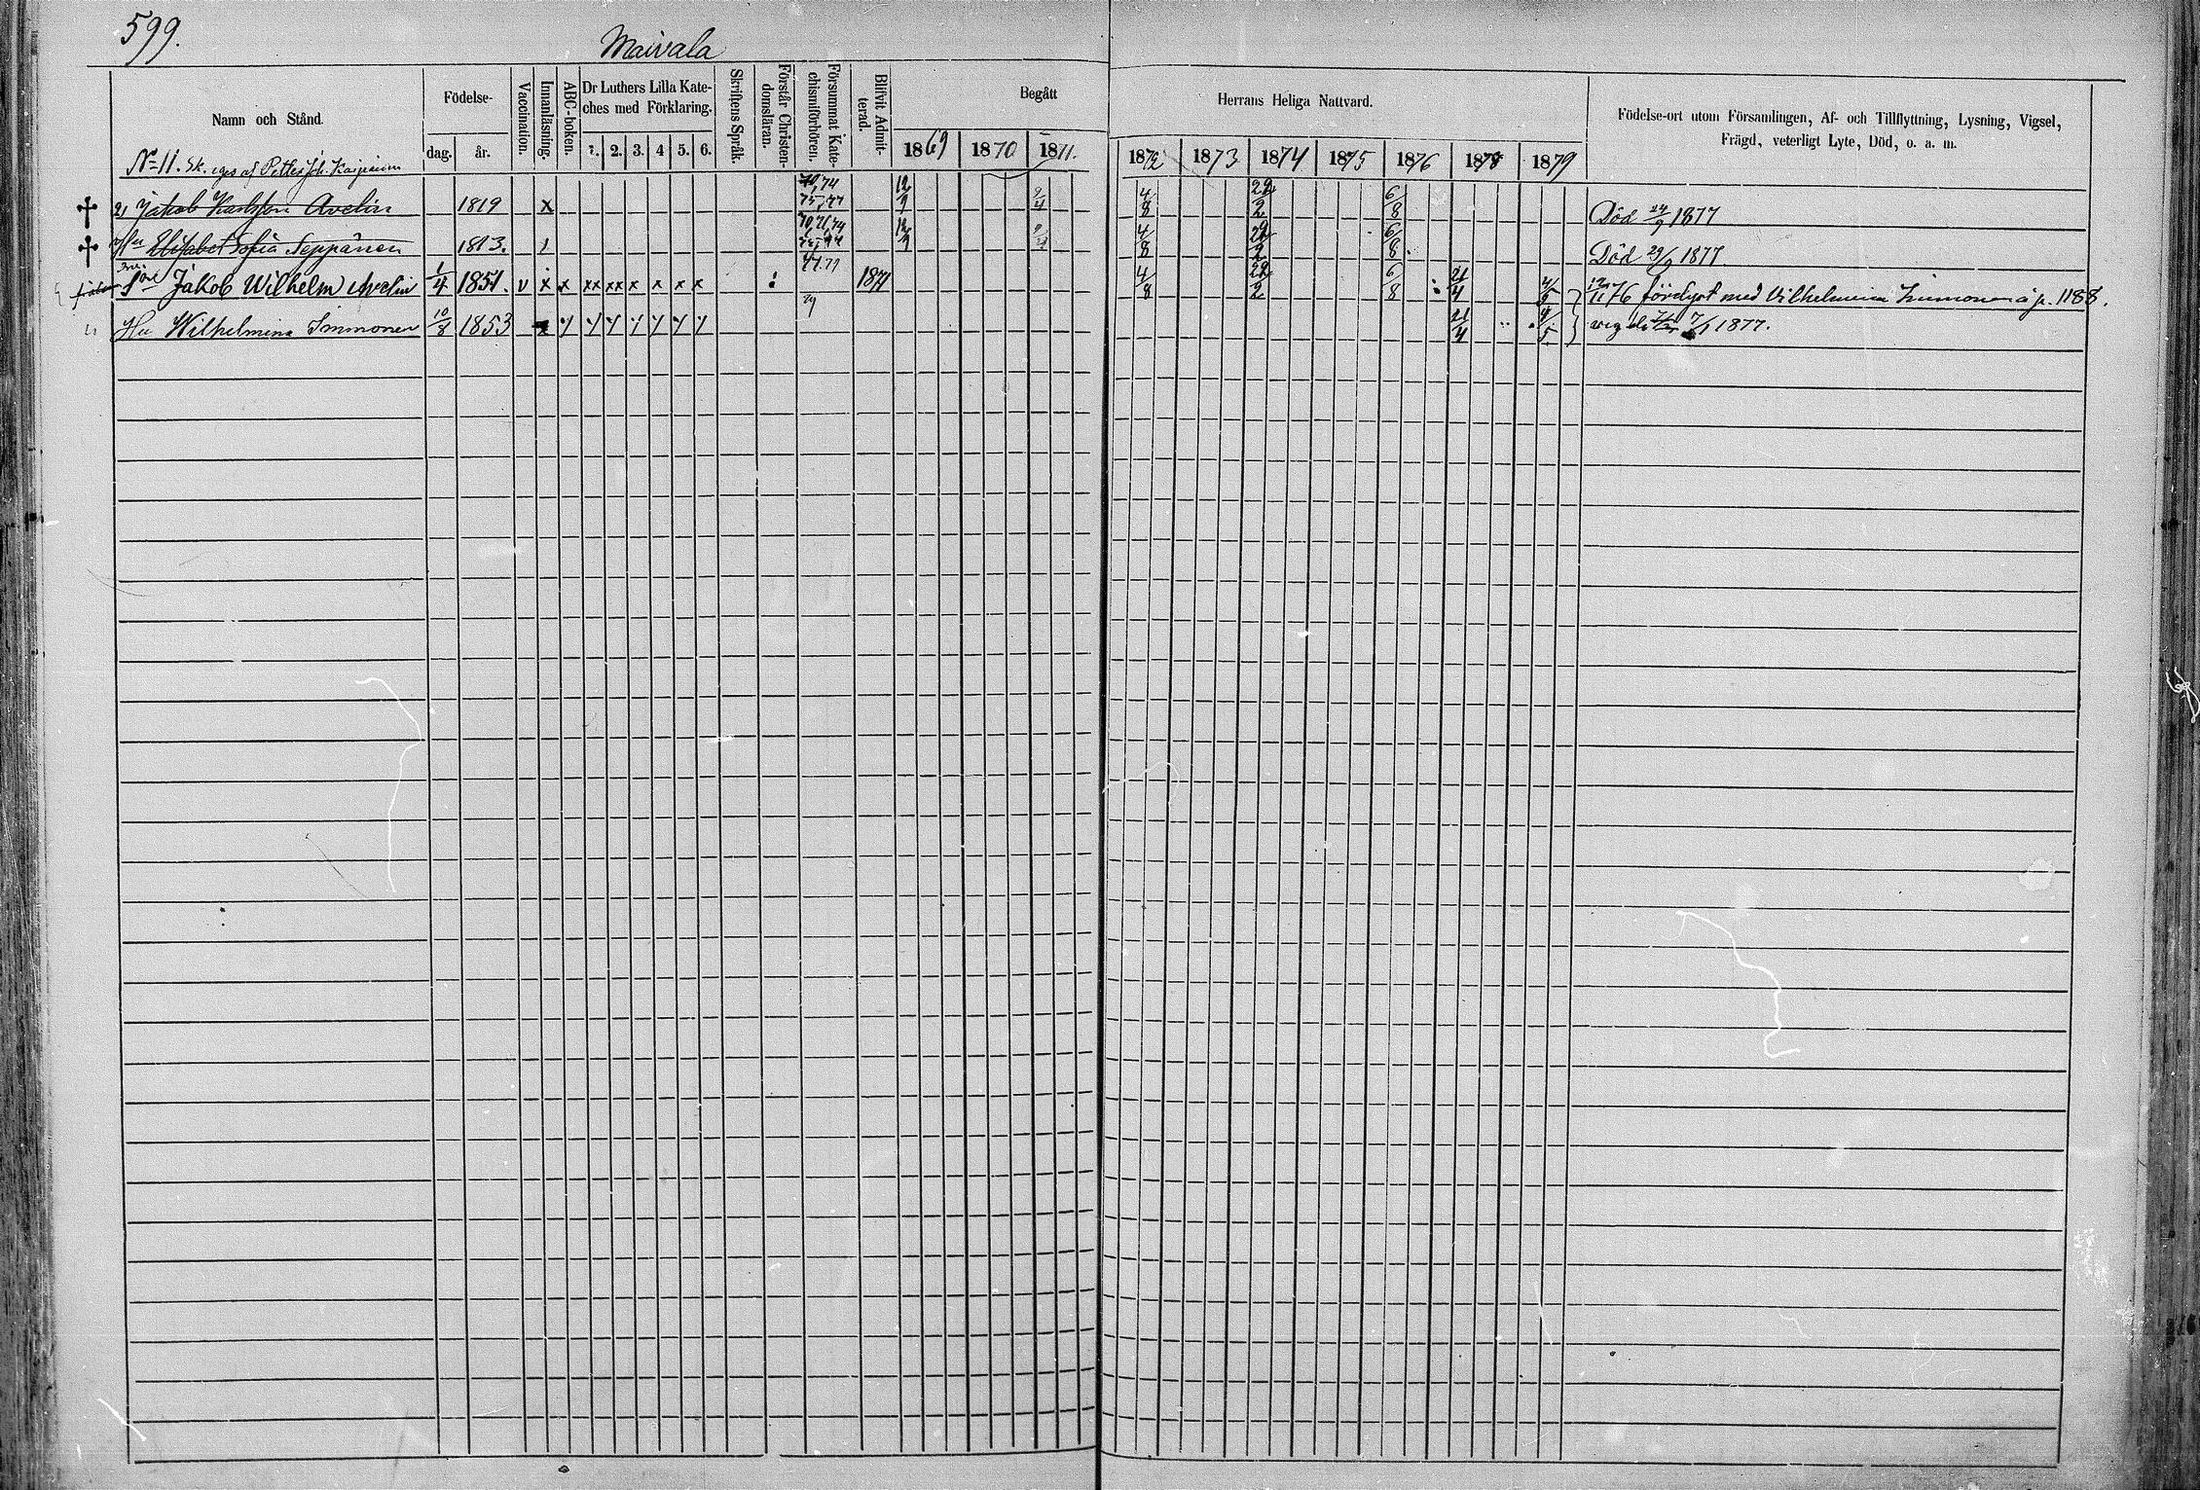 599.
Maivala
Namn och Stånd.
Födelse-
dag.
år.
Vaccination.
Innanläsning.
ABC-boken.
Dr Luthers Lilla Kate-
ches med Förklaring.
1. 2. 3. 4. 5. 6.
Skriftens Språk.
Förstår Christen-
domsläran.
Försummat Kate-
chismiförhören.
Blifvit Admit-
terad.
Begått
Herrans Heliga Nattvard.
1869 1870 1871. 1872 1873 1874 1875 1876 1878 1879
Födelse-ort utom Församlingen, Af- och Tillflyttning, Lysning, Vigsel,
Frägd, veterligt Lyte, Död, o. a. m.
No 11. Sk. eges af Petter Joh. Kaipainen
Jakob Karlsson Avelin 1819 x 12/9 9/4 4/8 22/2 6/8 Död 24/9 1877
Elisabet Sofia Seppänen 1813. 12/9 9/4 4/8 22/2 6/8 Död 29/9 1877
Son Jakob Wilhelm Avelin 1/4 1851. v x x xx xx x x x x 1871 4/8 22/2 6/8 21/4 4/5 1876 förlyst med Vilhelmina Immonen å p. 1188.
Hu Wilhelmina Immonen 10/8 1853 21/4 4/5 vigde 7/1 1877.